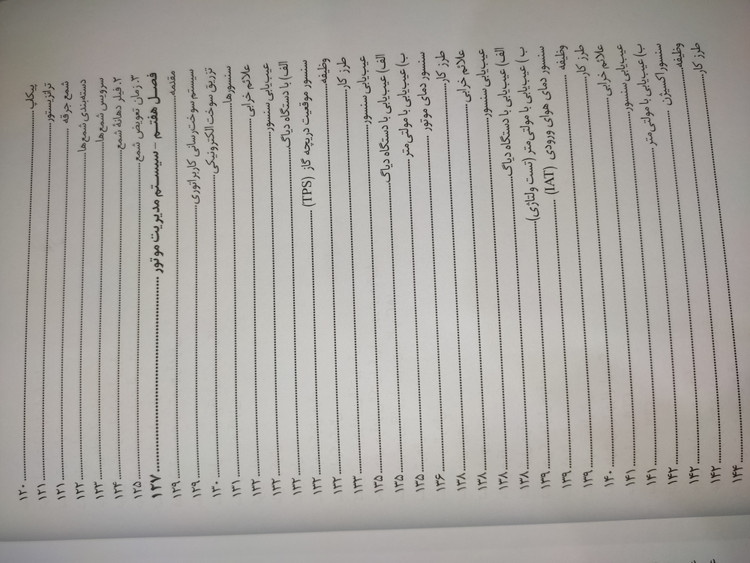 پیکاپ ........ ۱۲۰
ترانزیستور ........ ۱۲۱
شمع جرقه ........ ۱۲۱
دسته‌بندی شمع‌ها ........ ۱۲۲
سرویس شمع‌ها ........ ۱۲۳
۲. فیلر دهانهٔ شمع ........ ۱۲۴
۳. زمان تعویض شمع ........ ۱۲۵
فصل هفتم – سیستم مدیریت موتور ........ ۱۲۷
مقدمه ........ ۱۲۹
سیستم سوخت‌رسانی کاربراتوری ........ ۱۲۹
تزریق سوخت الکترونیکی ........ ۱۳۰
سنسورها ........ ۱۳۱
علائم خرابی ........ ۱۳۲
عیب‌یابی سنسور ........ ۱۳۲
الف) با دستگاه دیاگ ........ ۱۳۲
سنسور موقعیت دریچه گاز (TPS) ........ ۱۳۲
وظیفه ........ ۱۳۳
طرز کار ........ ۱۳۳
عیب‌یابی سنسور ........ ۱۳۵
الف) عیب‌یابی با دستگاه دیاگ ........ ۱۳۵
ب) عیب‌یابی با مولتی‌متر ........ ۱۳۵
سنسور دمای موتور ........ ۱۳۶
طرز کار ........ ۱۳۸
علائم خرابی ........ ۱۳۸
عیب‌یابی سنسور ........ ۱۳۸
الف) عیب‌یابی با دستگاه دیاگ ........ ۱۳۸
ب) عیب‌یابی با مولتی‌متر (تست ولتاژی) ........ ۱۳۹
سنسور دمای هوای ورودی (IAT) ........ ۱۳۹
وظیفه ........ ۱۳۹
طرز کار ........ ۱۴۰
علائم خرابی ........ ۱۴۱
عیب‌یابی سنسور ........ ۱۴۱
ب) عیب‌یابی با مولتی‌متر ........ ۱۴۲
سنسور اکسیژن ........ ۱۴۲
وظیفه ........ ۱۴۲
طرز کار ........ ۱۴۴